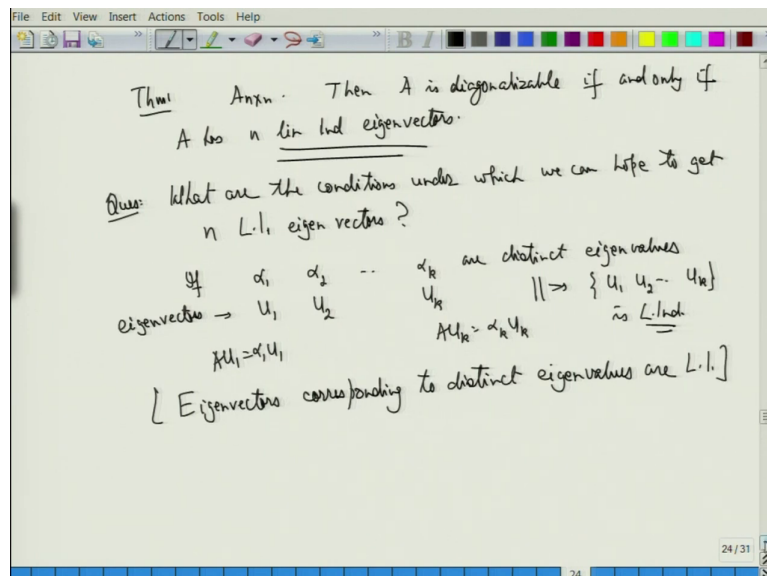 File Edit View Insert Actions Tools Help
Thm: Anxn. Then A is diagonalizable if and only if
A has n lin Ind eigenvectors.
Ques: What are the conditions under which we can hope to get
n L.I. eigen vectors?
If α1 α2 .. αk are distinct eigenvalues
eigenvectors → U1 U2 Uk ||⇒ {U1 U2 .. Uk}
AU1=α1U1 AUk=αkUk is L.Ind.
[Eigenvectors corresponding to distinct eigenvalues are L.I.]
24/31
24